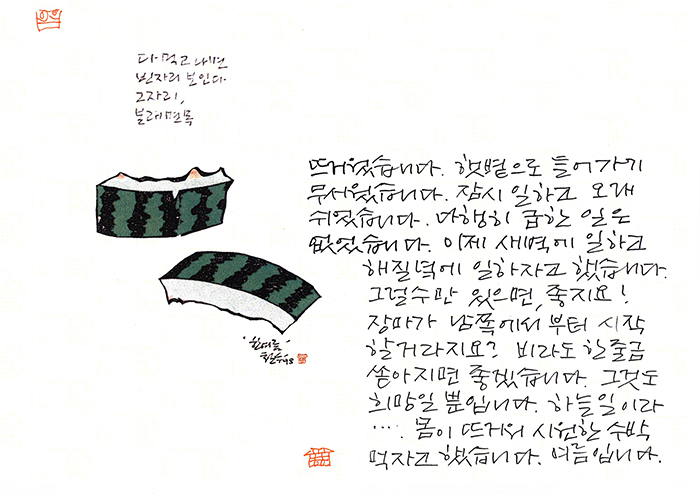 다 먹고 나면
빈자리 보인다
그자리,
본래면목
'한여름'
뜨거웠습니다. 햇볕으로 들어가기
무서웠습니다. 잠시 일하고 오래
쉬었습니다. 다행히 급한 일은
없었습니다. 이제 새벽에 일하고
해질녘에 일하자고 했습니다.
그럴수만 있으면, 좋지요!
장마가 남쪽에서부터 시작
할거라지요? 비라도 한줄금
쏟아지면 좋겠습니다. 그것도
희망일 뿐입니다. 하늘일이라
.... 몸이 뜨거워 시원한 수박
먹자고 했습니다. 여름입니다.